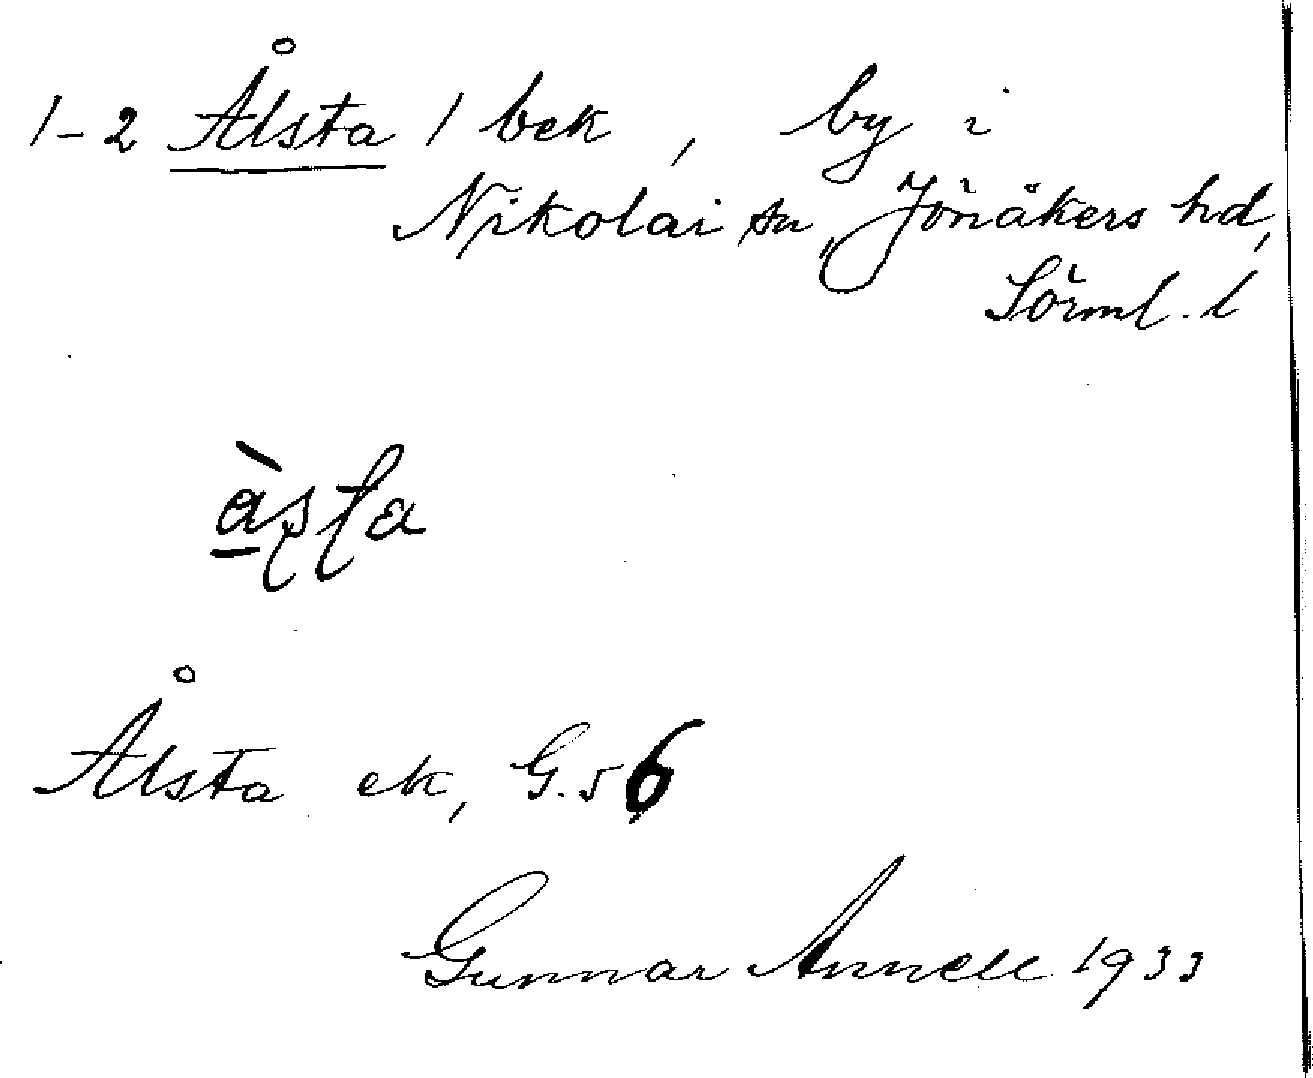 1-2 Ålsta 1 bek, by i
Nikolai sn, Jönåkers hd,
Sörml. l
àsta
Ålsta ek, G. 56
Gunnar Annell 1933